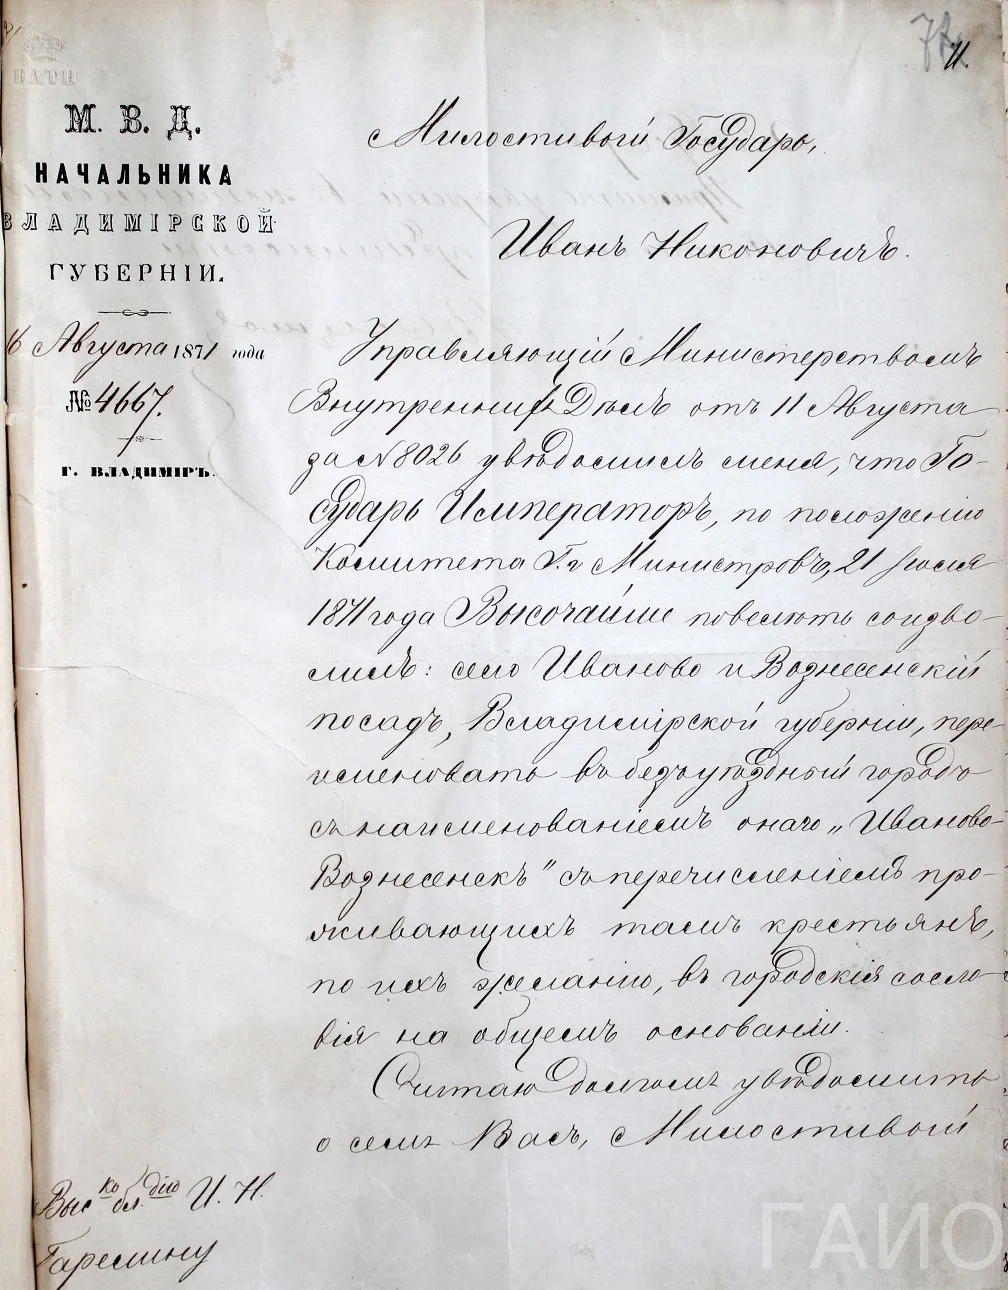 71.
М. В. Д.
НАЧАЛЬНИКА
ВЛАДИМІРСКОЙ
ГУБЕРНІИ.
16 Августа 1871 года
№ 4667.
Г. ВЛАДИМІРЪ.
Милостивый Государь,
Иванъ Никоновичъ.
Управляющій Министерствомъ
Внутреннихъ Дѣлъ отъ 11 Августа
за № 8026 увѣдомилъ меня, что Го-
сударь Императоръ, по положенію
Комитета Г.г. Министровъ, 21 Іюля
1871 года Высочайше повелѣть соизво-
лилъ: село Иваново и Вознесенскій
посадъ, Владимірской губерніи, пере-
именовать въ безъуѣздный городъ
съ наименованіемъ онаго „Иваново-
Вознесенскъ" съ перечисленіемъ про-
живающихъ тамъ крестьянъ,
по ихъ желанію, въ городскія сосло-
вія на общемъ основаніи.
Считаю долгомъ увѣдомить
о семъ Васъ, Милостивый
Выс ко бл. дію И. Н.
Гарелину
ГАИО